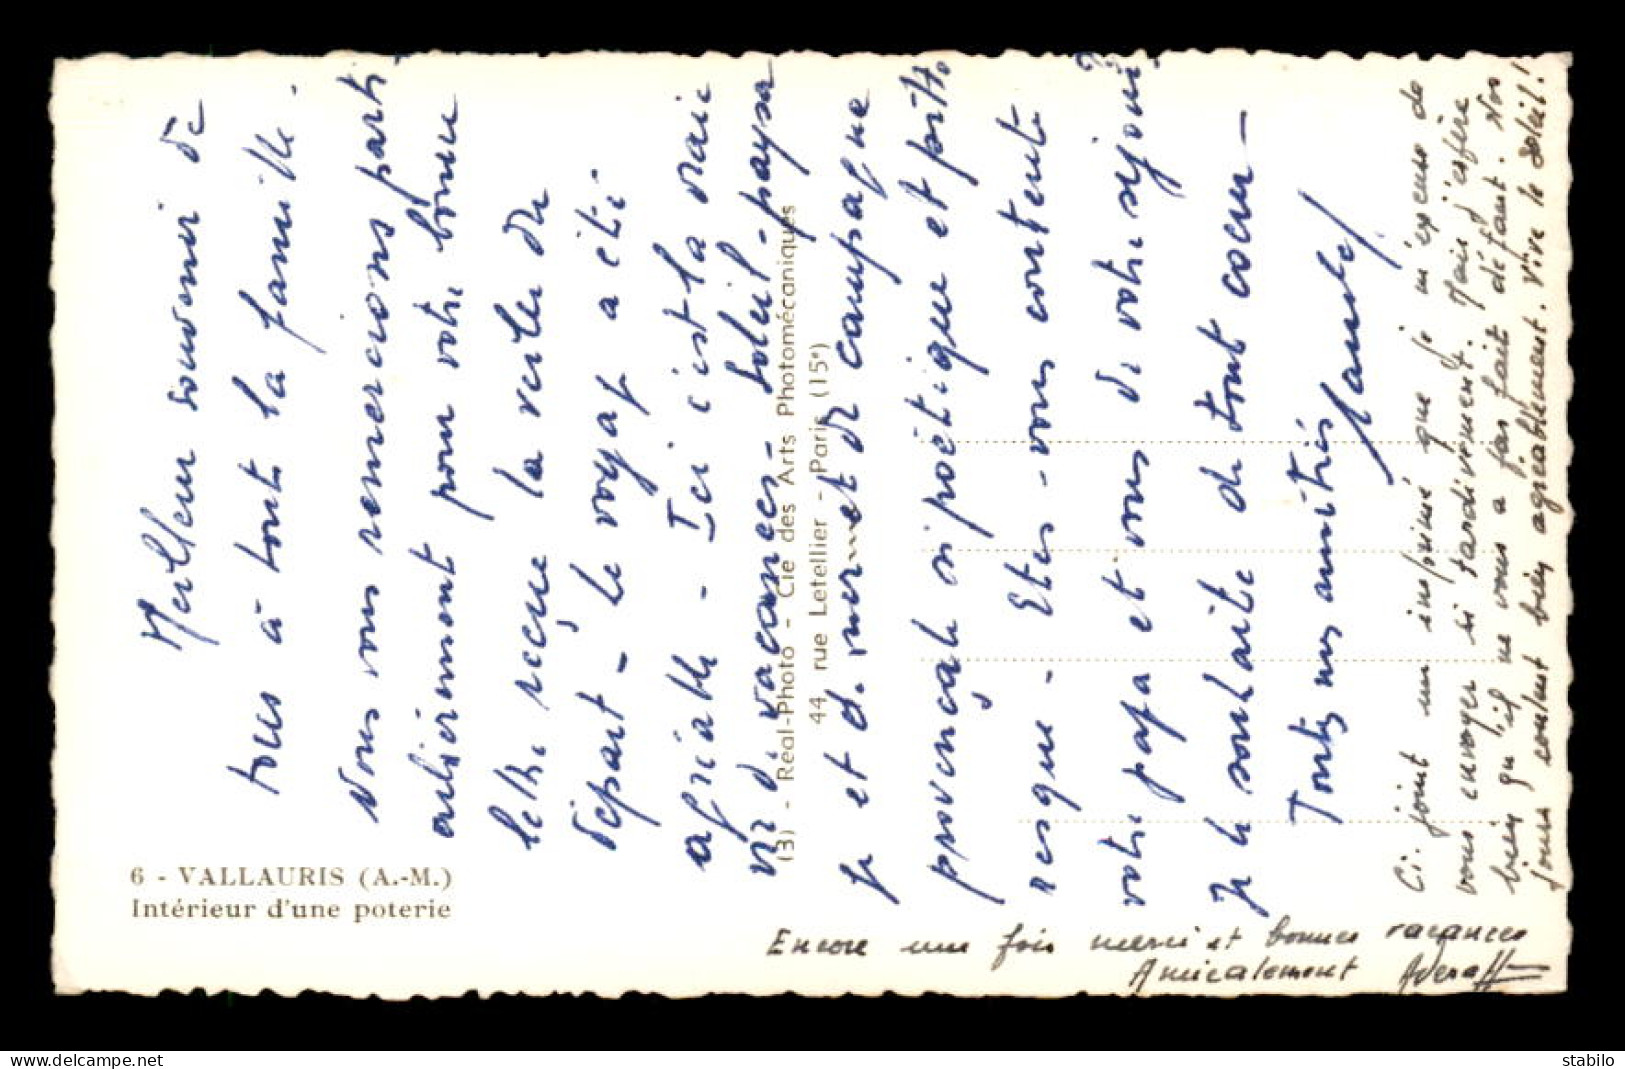 6 - VALLAURIS (A.-M.)
Intérieur d'une poterie
(3) - Réal-Photo - Cie des Arts Photomécaniques
44, rue Letellier - Paris (15e)
Meilleur souvenir de
tous à toute la famille.
Nous vous remercions parti
culièrement pour votre bonne
lettre reçue la veille du
départ - le voyage a été
agréable - Ici c'est la vraie
vie de vacances - soleil - paysa
ge et de mer et de campagne
provençale si poétique et pitto
resque - Etes-vous contente
votre papa et vous de votre séjour?
Je le souhaite de tout cœur -
Toutes nos amitiés
Ci-joint un imprimé que je m'excuse de
vous envoyer si tardivement. Mais j'espère
bien qu'il ne vous a pas fait défaut. Nos
jours coulent bien agréablement. Vive le soleil!
Encore une fois merci et bonnes vacances
Amicalement
stabilo